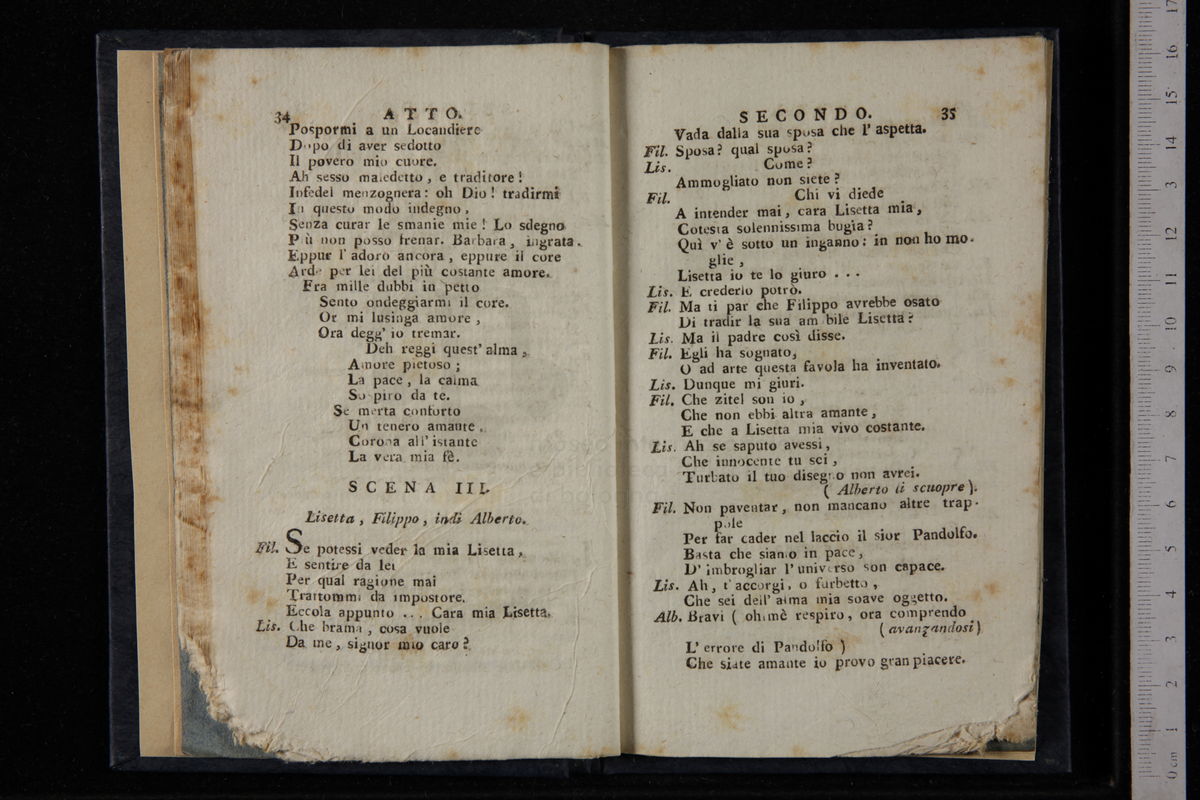 34 ATTO.
Pospormi a un Locandiere
Dopo di aver sedotto
Il povero mio cuore.
Ah sesso maledetto, e traditore!
Infedel menzognera: oh Dio! tradirmi
In questo modo indegno,
Senza curar le smanie mie! Lo sdegno
Più non posso frenar. Barbara, ingrata.
Eppur l'adoro ancora, eppure il core
Arde per lei del più costante amore.
Fra mille dubbi in petto
Sento ondeggiarmi il core.
Or mi lusinga amore,
Ora degg' io tremar.
Deh reggi quest' alma,
Amore pietoso;
La pace, la calma
Sospiro da te.
Se merta conforto
Un tenero amante,
Corona all' istante
La vera mia fè.
SCENA III.
Lisetta, Filippo, indi Alberto.
Fil. Se potessi veder la mia Lisetta,
E sentire da lei
Per qual ragione mai
Trattommi da impostore.
Eccola appunto ... Cara mia Lisetta.
Lis. Che brama, cosa vuole
Da me, signor mio caro?
SECONDO. 35
Vada dalla sua sposa che l' aspetta.
Fil. Sposa? qual sposa?
Lis. Come?
Ammogliato non siete?
Fil. Chi vi diede
A intender mai, cara Lisetta mia,
Cotesta solennissima bugia?
Quì v' è sotto un inganno: in non ho mo-
glie,
Lisetta io te lo giuro ...
Lis. E crederlo potrò.
Fil. Ma ti par che Filippo avrebbe osato
Di tradir la sua amabile Lisetta?
Lis. Ma il padre così disse.
Fil. Egli ha sognato,
O ad arte questa favola ha inventato.
Lis. Dunque mi giuri.
Fil. Che zitel son io,
Che non ebbi altra amante,
E che a Lisetta mia vivo costante.
Lis. Ah se saputo avessi,
Che innocente tu sei,
Turbato il tuo disegno non avrei.
( Alberto si scuopre ).
Fil. Non paventar, non mancano altre trap-
pole
Per far cader nel laccio il sior Pandolfo.
Basta che siamo in pace,
D' imbrogliar l' universo son capace.
Lis. Ah, t'accorgi, o furbetto,
Che sei dell' alma mia soave oggetto.
Alb. Bravi ( ohimè respiro, ora comprendo
( avanzandosi )
L' errore di Pandolfo )
Che siate amante io provo gran piacere.
0 cm 1 2 3 4 5 6 7 8 9 10 11 12 13 14 15 16 17